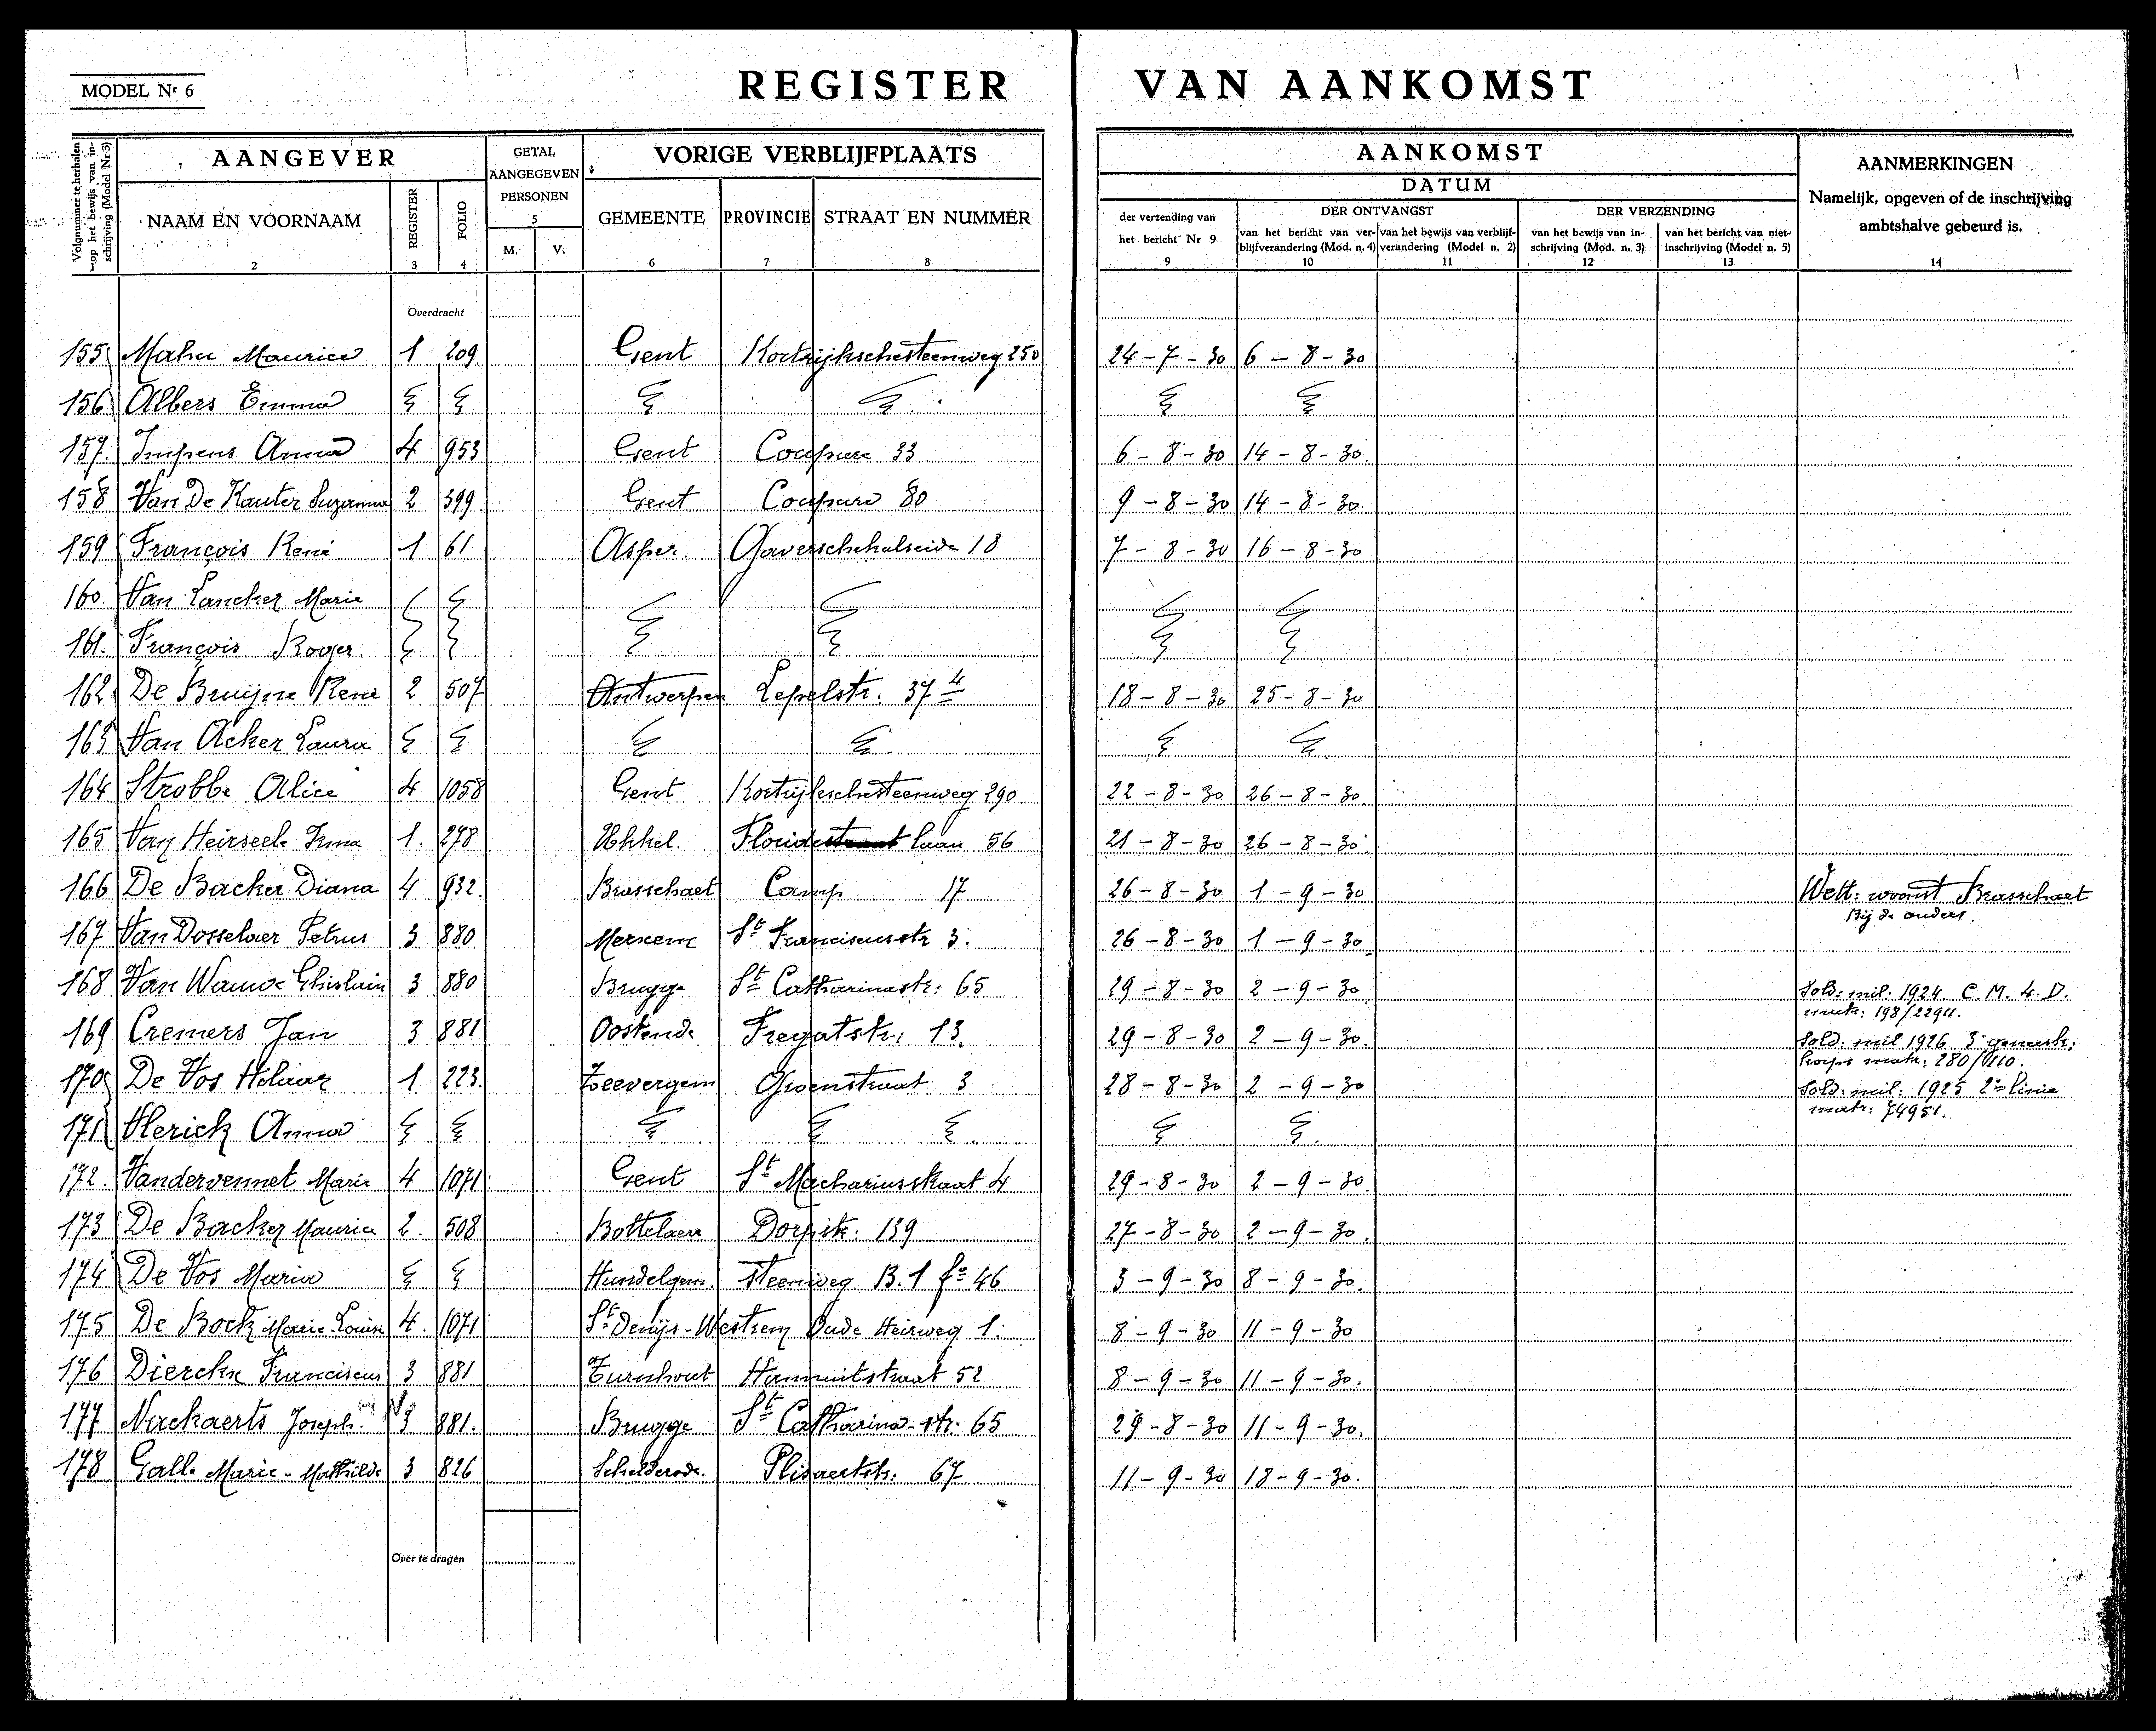 MODEL Nr 6
REGISTER VAN AANKOMST
Volgnummer te herhalen op het bewijs van inschrijving (Model Nr 3)
AANGEVER
GETAL AANGEGEVEN PERSONEN
5
VORIGE VERBLIJFPLAATS
AANKOMST
DATUM
AANMERKINGEN
Namelijk, opgeven of de inschrijving
ambtshalve gebeurd is.
NAAM EN VOORNAAM REGISTER FOLIO M. V. GEMEENTE PROVINCIE STRAAT EN NUMMER
der verzending van het bericht Nr 9
DER ONTVANGST
van het bericht van verblijfverandering (Mod. n. 4) van het bewijs van verblijfverandering (Model n. 2)
DER VERZENDING
van het bewijs van inschrijving (Mod. n. 3) van het bericht van niet-inschrijving (Model n. 5)
1 2 3 4 6 7 8 9 10 11 12 13 14
Overdracht
155 Mahu Maurice 1 209 Gent Kortrijkschesteenweg 250 24-7-30 6-8-30
156 Albers Emma
157. Impens Anna 4 953 Gent Coupure 33 6-8-30 14-8-30.
158 Van De Kauter Suzanna 2 399. Gent Coupure 80 9-8-30 14-8-30.
159 François René 1 61 Asper. 18 7-8-30 16-8-30
160. Van Lancker Marie
161. François Roger.
162 De Bruijne René 2 507 Antwerpen Lepelstr. 37 4 18-8-30 25-8-30
163 Van Acker Laura
164 Strobbe Alice 4 1058 Gent Kortrijkschesteenweg 290 22-8-30 26-8-30.
165 Van Heirseele Irma 1. 278 Ukkel. Floride laan 56 21-8-30 26-8-30.
166 De Backer Diana 4 932. Brasschaet Camp 17 26-8-30 1-9-30 Wett: woonst Brasschaet
Bij de ouders.
167 Van Dosselaer Petrus 3 880 Merxem St Franciscusstr 3. 26-8-30 1-9-30
168 Van Ghislain 3 880 Brugge St Catharinastr: 65 29-8-30 2-9-30 Sold: mil. 1924 C. M. 4. D.
matr: 198/22911.
169 Cremers Jan 3 881 Oostende Fregatstr: 13. 29-8-30 2-9-30. Sold: mil 1926 3e
matr: 280/
170 De Vos Hilaar 1 223. Zeevergem Groenstraat 3 28-8-30 2-9-30 Sold: mil: 1925 2e linie
matr: 74951.
171 Vlerick Anna
172. Vandervennet Marie 4 1071 Gent St Machariusstraat 4 29-8-30 2-9-30.
173 De Backer Maurice 2. 508 Bottelaere Dorpstr: 139 27-8-30 2-9-30.
174 De Vos Maria Hundelgem. steenweg B. 1 fo 46 3-9-30 8-9-30.
175 De Bock Marie Louise 4. 1071 St Denijs-Westrem Oude Heirweg 1. 8-9-30 11-9-30
176 Dierckx Franciscus 3 881 Turnhout Hannuitstraat 52 8-9-30 11-9-30.
177 Nackaerts Joseph. 3 881. Brugge St Catharina-str: 65 29-8-30 11-9-30.
178 Galle Marie-Mathilde 3 826 Schelderode. 67 11-9-30 18-9-30.
Over te dragen